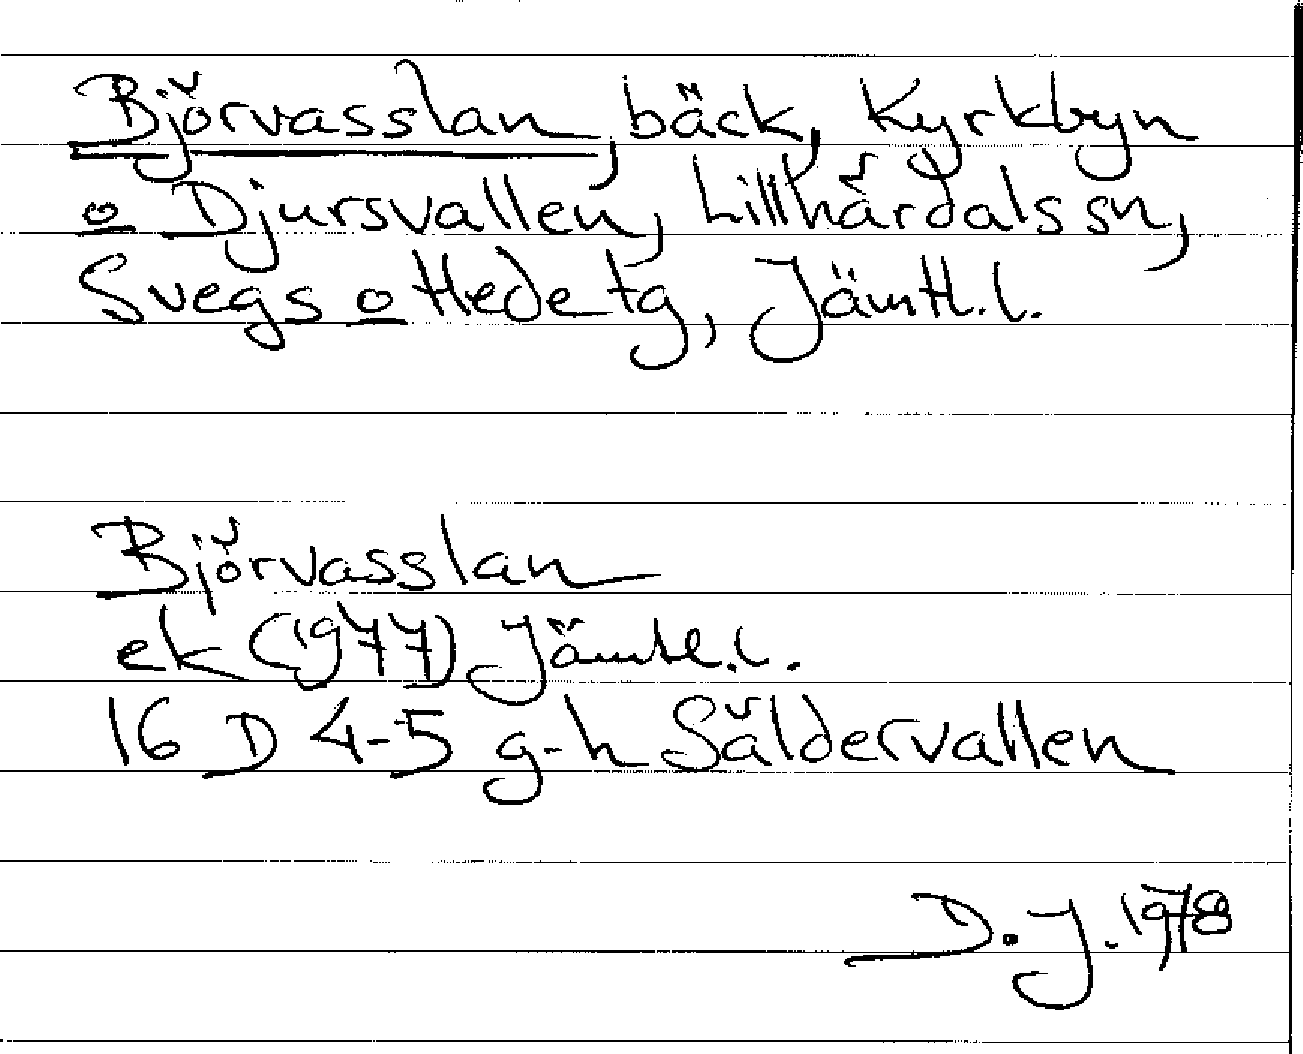 Björvasslan, bäck, Kyrkbyn
o Djursvallen, Lillhärdals sn,
Svegs o Hede tg, Jämtl.l.
Björvasslan
ek (1977) Jämtl.l.
16 D 4-5 g-h Såldervallen
D.J. 1978